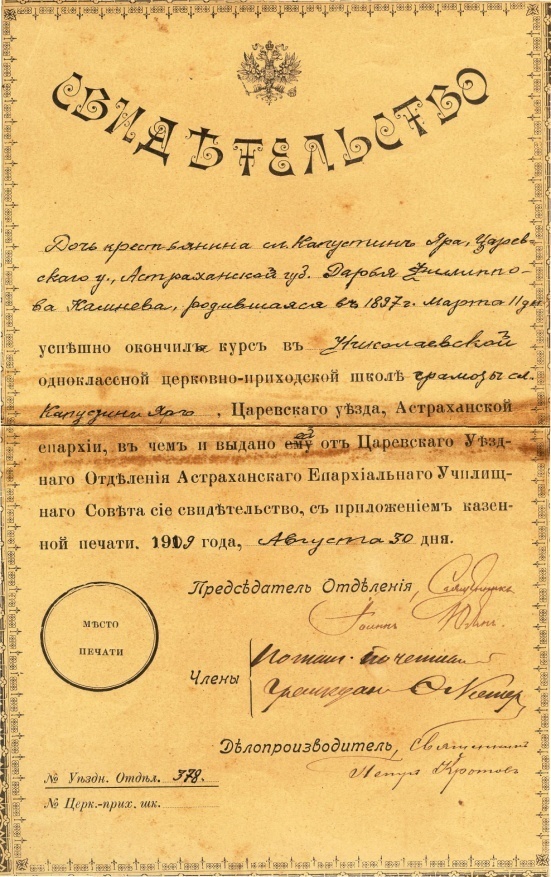 СВИДѢТЕЛЬСТВО
Дочь крестьянина сл. Капустинъ Яра, Царев-
скаго у., Астраханской губ. Дарья Филиппо-
ва Камнева, родившаяся въ 1897 г. Марта 11 дня
успѣшно окончила курсъ въ Николаевской
одноклассной церковно-приходской школѣ грамоты сл.
Капустинъ Яръ, Царевскаго уѣзда, Астраханской
епархіи, въ чемъ и выдано ей отъ Царевскаго Уѣзд-
наго Отдѣленія Астраханскаго Епархіальнаго Училищ-
наго Совѣта сіе свидѣтельство, съ приложеніемъ казен-
ной печати. 1909 года, Августа 30 дня.
Предсѣдатель Отдѣленія, Священникъ
Іоаннъ
МѢСТО
ПЕЧАТИ
Члены Потом. Почетный
Гражданин
Дѣлопроизводитель, Священникъ
Петръ Кротовъ
№ Уѣздн. Отдѣл. 378.
№ Церк.-прих. шк.